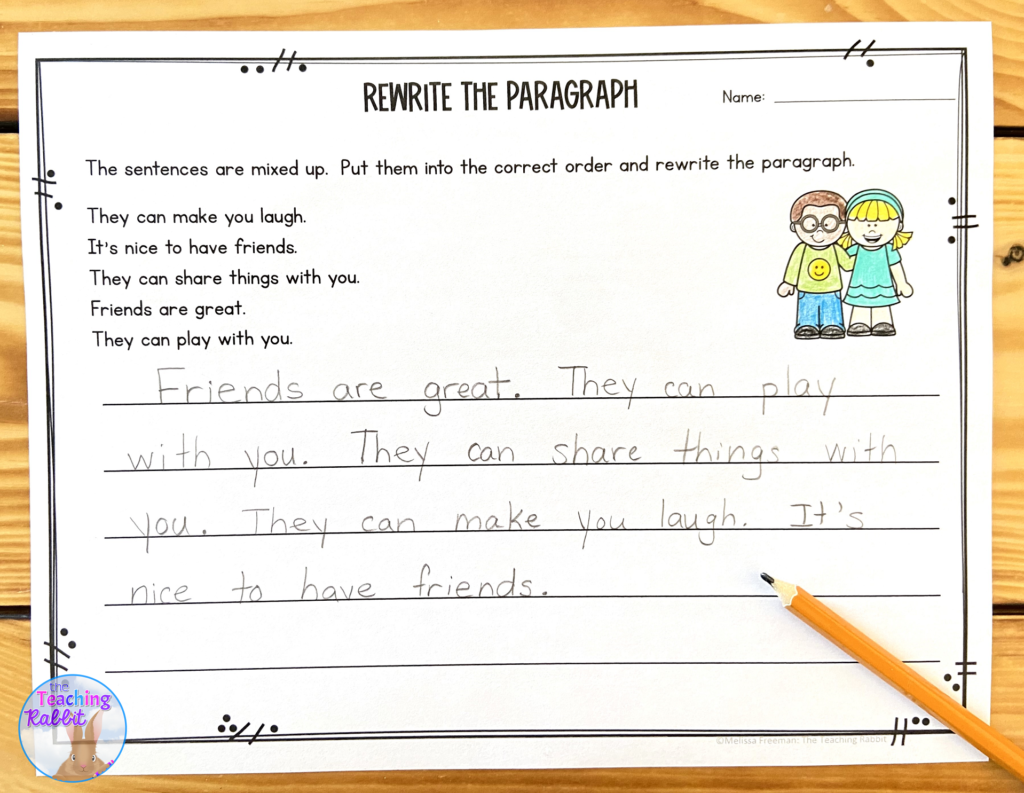 REWRITE THE PARAGRAPH
Name:
The sentences are mixed up. Put them into the correct order and rewrite the paragraph.
They can make you laugh.
It's nice to have friends.
They can share things with you.
Friends are great.
They can play with you.
Friends are great. They can play
with you. They can share things with
you. They can make you laugh. It's
nice to have friends.
the
Teaching
Rabbit
©Melissa Freeman: The Teaching Rabbit